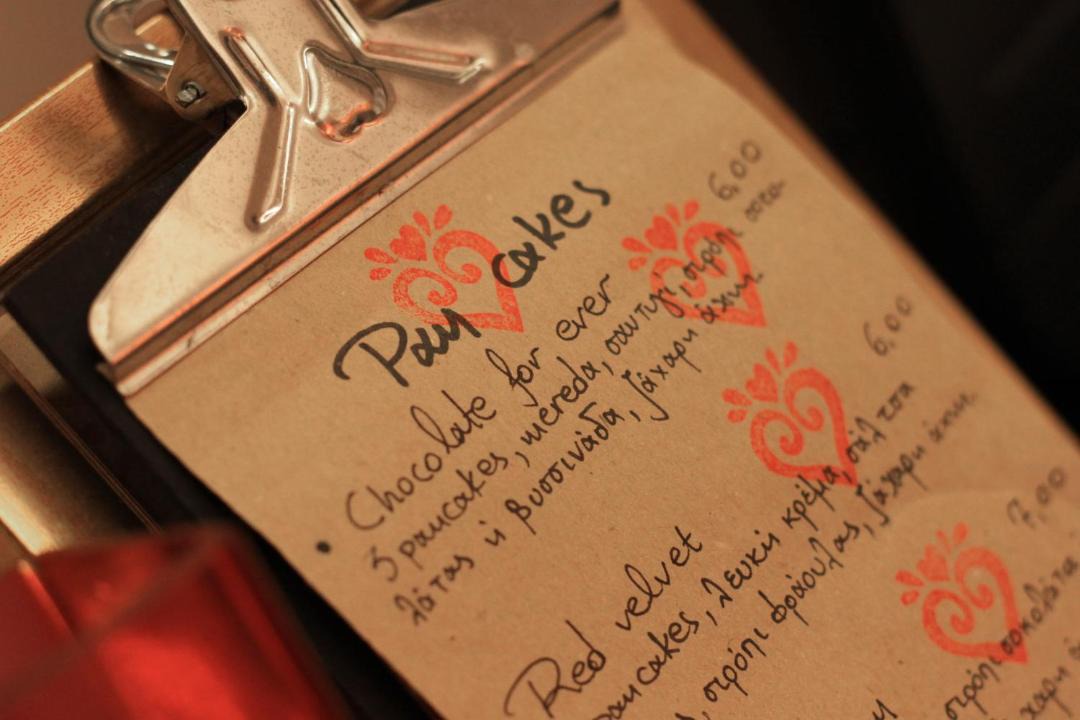 Pan cakes
Chocolate for ever 6,00
3 pancakes, mereda, σαντιγί, σιρόπι σοκο-
λάτας ή βυσσινάδα, ζάχαρη άχνη.
Red velvet 6,00
pancakes, λευκή κρέμα, σάλτσα
, σιρόπι φράουλας, ζάχαρη άχνη.
7,00
σιρόπι σοκολάτα